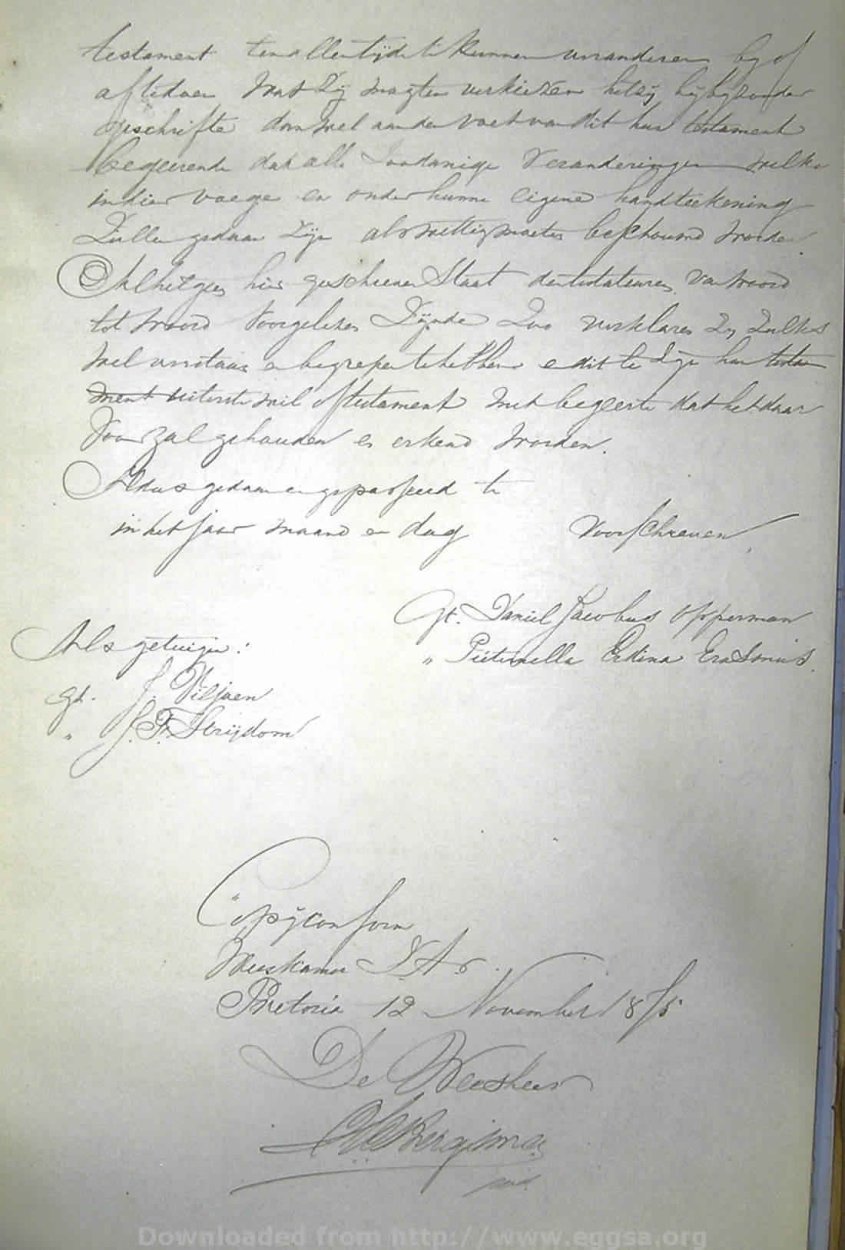 testament ten allen tijde te kunnen veranderen by of
aftedoen wat Zij mogten verkiezen hetzij bij byzonder
geschrifte dan wel aan den voet van dit hun testament
begeerende dat alle Zoodanige Veranderingen welke
in dier voege en onder hunne eigene handteekening
Zullen gedaan Zijn als wettig moeten beschouwd worden
Al hetgeen hier geschreven Staat den testateuren van woord
tot woord Voorgelezen Zijnde Zoo verklaren Zij Zulks
wel verstaan en begrepen te hebben en dit te Zijn hun testa
ment uiterste wil of testament met begeerte dat het daar
Voor zal gehouden en erkend worden.
Aldus gedaan en gepasseerd te
in het jaar maand en dag Voorschreven.
Gt. Daniel Jacobus Opperman
" Pieternella Erasmus.
Als getuigen:
gt. J. Viljoen
" J. F. Strijdom
Copij conform
Weeskamer Z.A.R.
Pretoria 12 November 1875
De Weesheer
Bergsma
Downloaded from http://www.eggsa.org